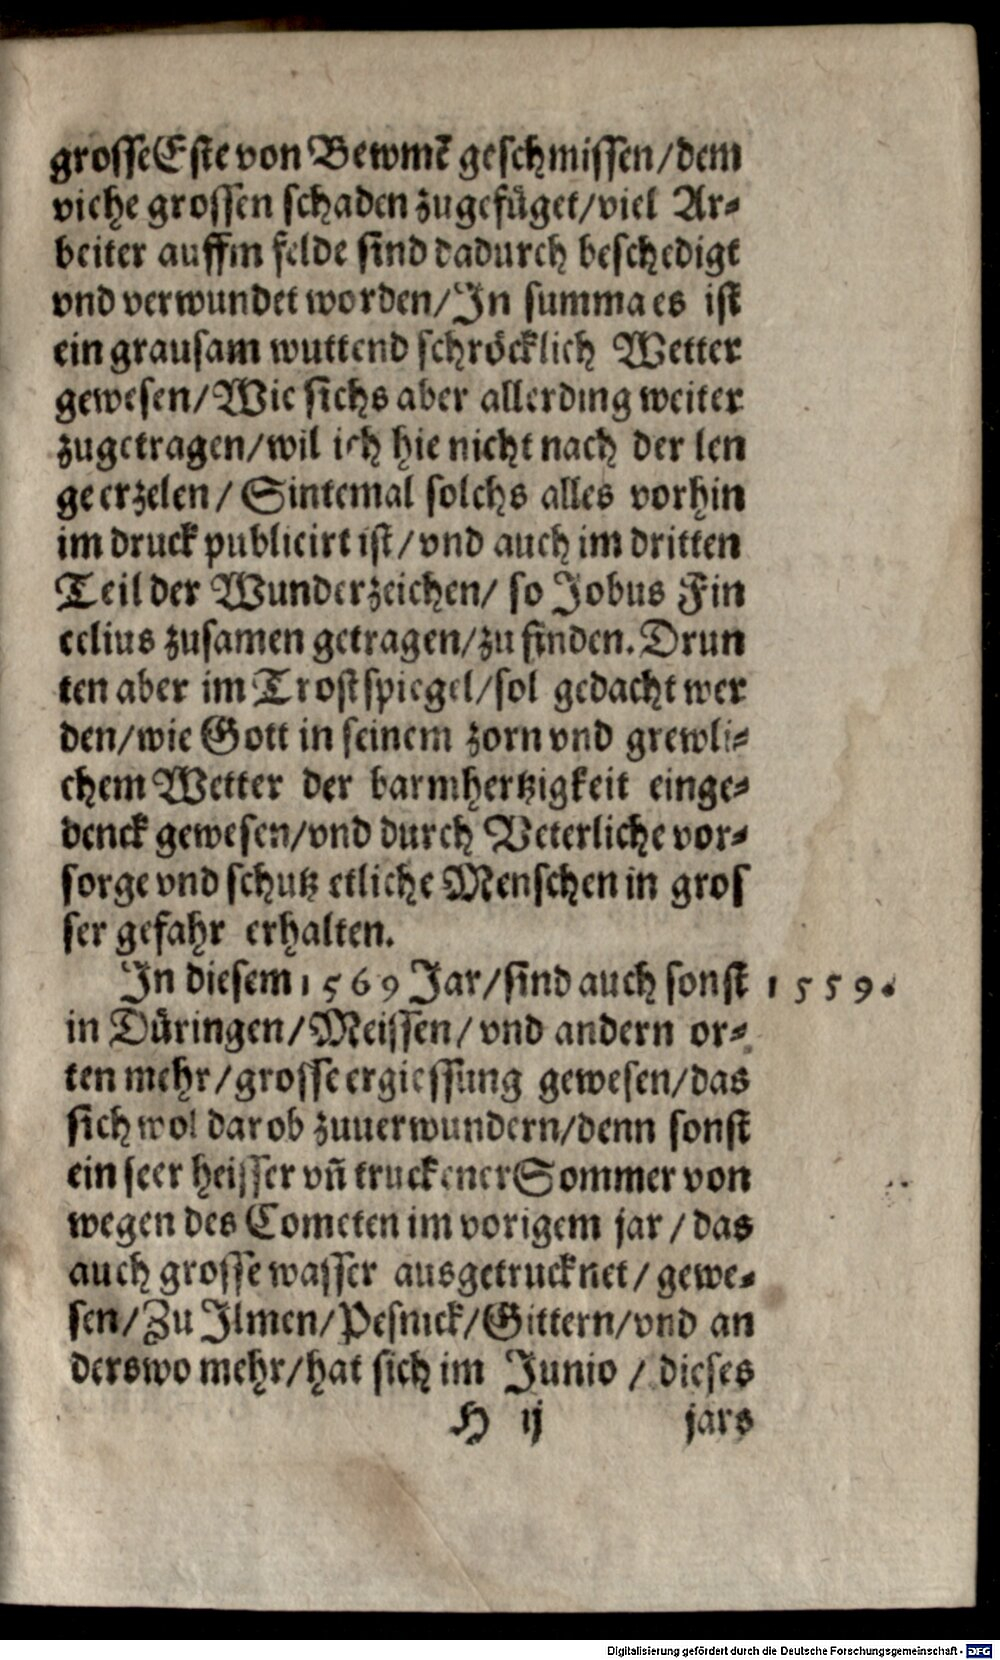 grosse Este von Bewmē geschmissen/dem
viehe grossen schaden zugefüget/viel Ar-
beiter auffm felde sind dadurch beschedigt
vnd verwundet worden/In summa es ist
ein grausam wuttend schröcklich Wetter
gewesen/Wie sichs aber allerding weiter
zugetragen/wil ich hie nicht nach der len
ge erzelen/ Sintemal solchs alles vorhin
im druck publicirt ist/vnd auch im dritten
Teil der Wunderzeichen/ so Jobus Fin
celius zusamen getragen/zu finden. Drun
ten aber im Trostspiegel/sol gedacht wer
den/wie Gott in seinem zorn vnd grewli-
chem Wetter der barmhertzigkeit einge-
denck gewesen/vnd durch Veterliche vor-
sorge vnd schutz etliche Menschen in gros
ser gefahr erhalten.
In diesem 1569 Jar/sind auch sonst 1559.
in Düringen/Meissen/ vnd andern or-
ten mehr/grosse ergiessung gewesen/das
sich wol darob zuuerwundern/denn sonst
ein seer heisser vñ truckener Sommer von
wegen des Cometen im vorigem jar/das
auch grosse wasser ausgetrucknet/gewe-
sen/Zu Ilmen/Pesnick/Gittern/vnd an
derswo mehr/hat sich im Junio/dieses
H ij jars
Digitalisierung gefördert durch die Deutsche Forschungsgemeinschaft - DFG